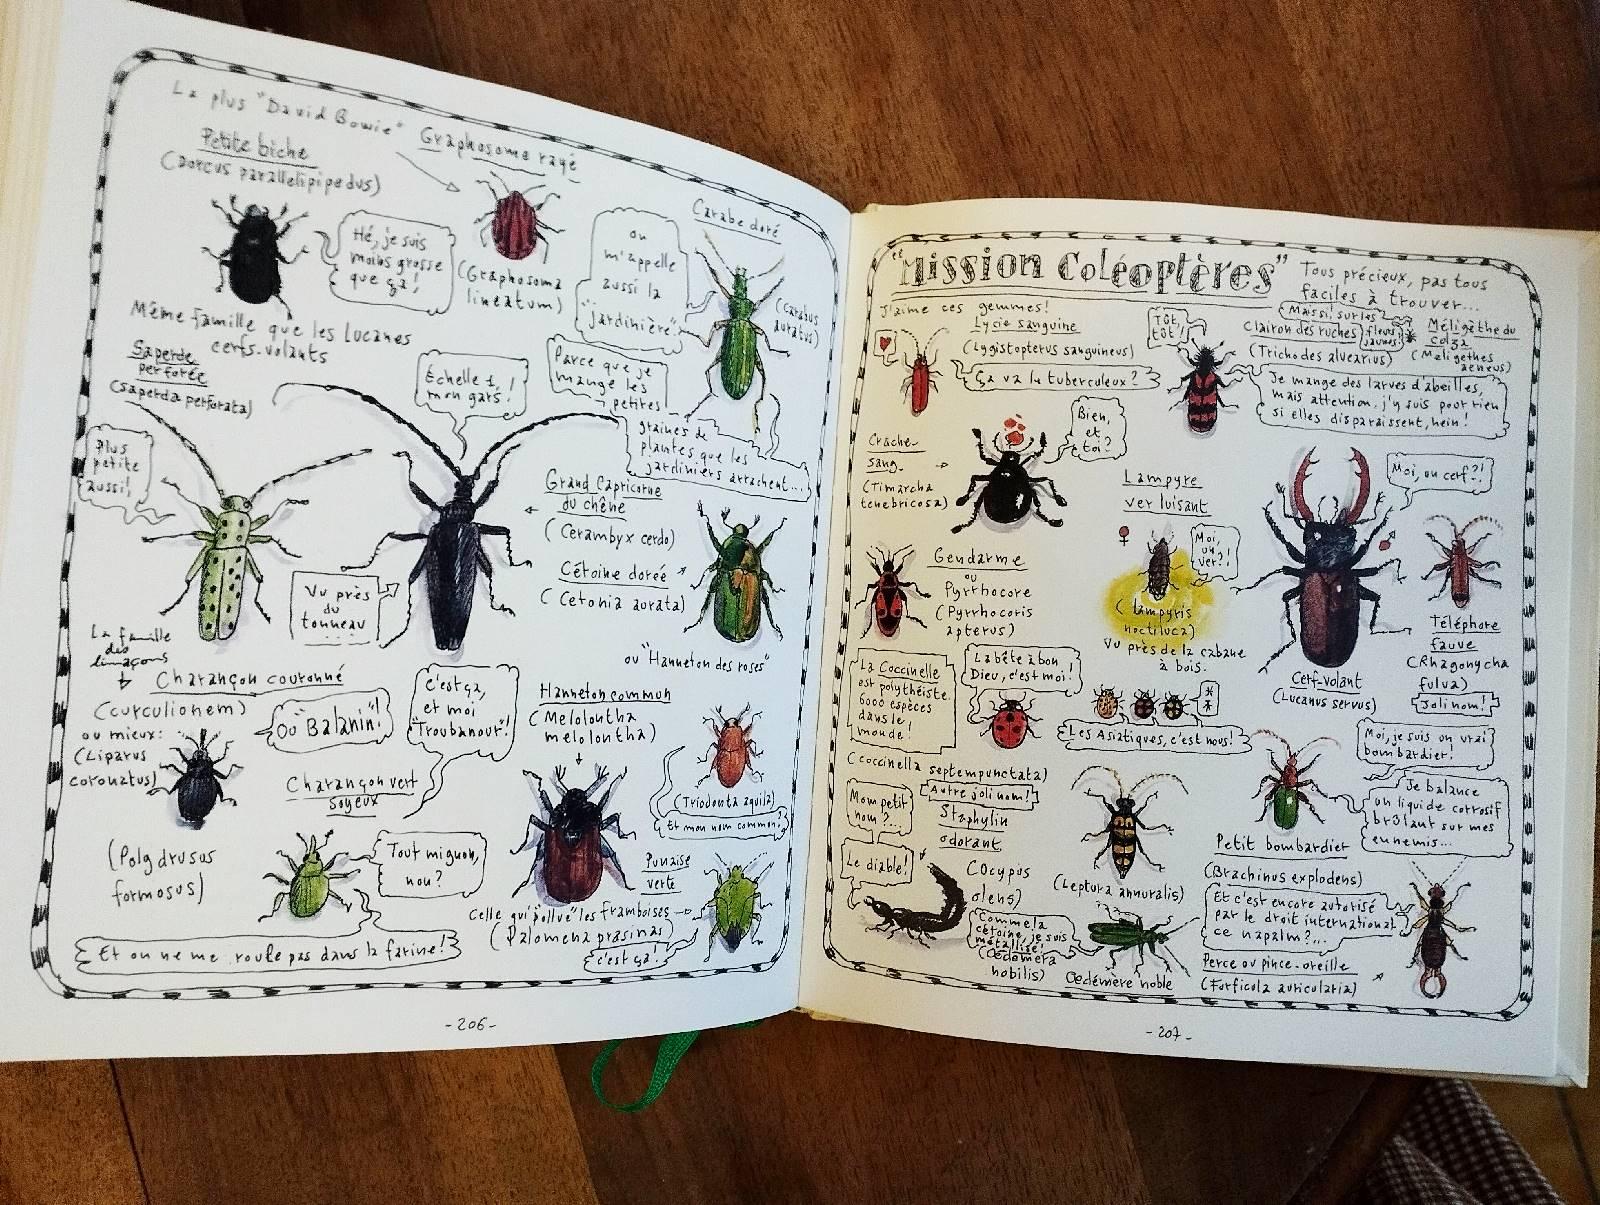 La plus "David Bowie"
Graphosome rayé
Petite biche
(Dorcus parallelipipedus)
Hé, je suis
moins grosse
que ça!
(Graphosoma
lineatum)
Même famille que les Lucanes
cerfs-volants
on
m'appelle
aussi la
"jardinière".
Carabe doré
(Carabus
auratus)
Parce que je
mange les
petites
graines de
plantes que les
jardiniers arrachent...
Saperde
perforée
(Saperda perforata)
Plus
petite
aussi!
Échelle 1,
mon gars!
Grand Capricorne
du chêne
(Cerambyx cerdo)
Vu près
du
tonneau
Cétoine dorée
(Cetonia aurata)
ou "Hanneton des roses"
La famille
des
limaçons
Charançon couronné
(curculionem)
ou mieux:
(Liparus
coronatus)
Ou "Balanin"!
C'est ça,
et moi
"Troubanour"!
Hanneton commun
(Melolontha
melolontha)
(Triodonta aquila)
Et mon nom commun?
Charançon vert
soyeux
(Polydrusus
formosus)
Tout mignon,
nou?
Et on ne me roule pas dans la farine!
Punaise
verte
Celle qui "pollue" les framboises
(Palomena prasinas)
c'est ça!
-206-
"Mission Coléoptères"
Tous précieux, pas tous
faciles à trouver...
J'aime ces gemmes!
Lycie sanguine
(Lygistopterus sanguineus)
Ça va le tuberculeux?
Tût
tût!
Clairon des ruches
(Trichodes alvearius)
Mais si! sur les
fleurs
jaunes!
Méligèthe du
colza
(Meligethes
aeneus)
Je mange des larves d'abeilles,
mais attention, j'y suis pour rien
si elles disparaissent, hein!
Crache-
sang-
(Timarcha
tenebricosa)
Bien,
et
toi?
Lampyre
ver luisant
♀
Moi,
un
ver?!
(lampyris
noctiluca)
Vu près de la cabane
à bois.
Moi, un cerf?!
♂
Cerf-volant
(Lucanus servus)
Téléphore
fauve
(Rhagonycha
fulva)
Joli nom!
Gendarme
ou
Pyrrhocore
(Pyrrhocoris
apterus)
La Coccinelle
est polythéiste.
6000 espèces
dans le
monde!
La bête à bon
Dieu, c'est moi!
(coccinella septempunctata)
Les Asiatiques, c'est nous!
Moi, je suis un vrai
bombardier!
Je balance
un liquide corrosif
brûlant sur mes
ennemis...
Petit bombardier
(Brachinus explodens)
Et c'est encore autorisé
par le droit international
ce napalm?...
Perce ou pince-oreille
(Forficula auricularia)
Autre joli nom!
Staphylin
odorant
Mon petit
nom?...
Le diable!
(Ocypus
olens)
(Leptura annuralis)
Comme la
cétoine, je suis
métallisé!
(Oedemera
nobilis)
Oedémère noble
-207-